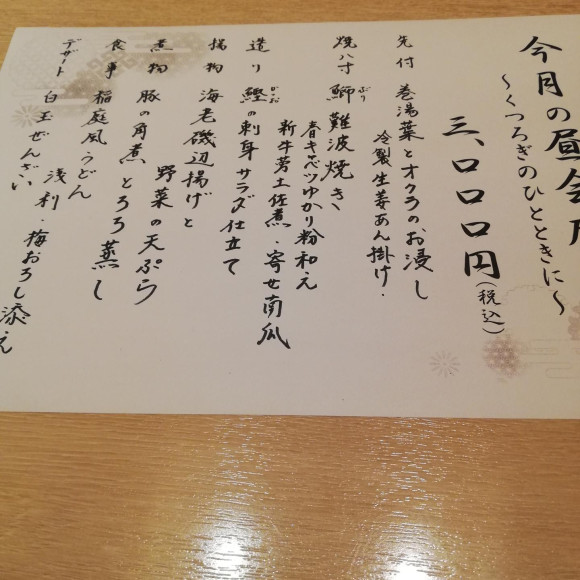 今月の昼会席
〜くつろぎのひとときに〜
三、〇〇〇円(税込)
先付 巻湯葉とオクラのお浸し
冷製生姜あん掛け.
焼八寸 鰤難波焼き
ぶり
春キャベツゆかり粉和え
新牛蒡土佐煮・寄せ南瓜
造り 鰹の刺身サラダ仕立て
かつお
揚物 海老磯辺揚げと
野菜の天ぷら
煮物 豚の角煮とろろ蒸し
食事 稲庭風うどん
浅利・梅おろし添え
デザート 白玉ぜんざい